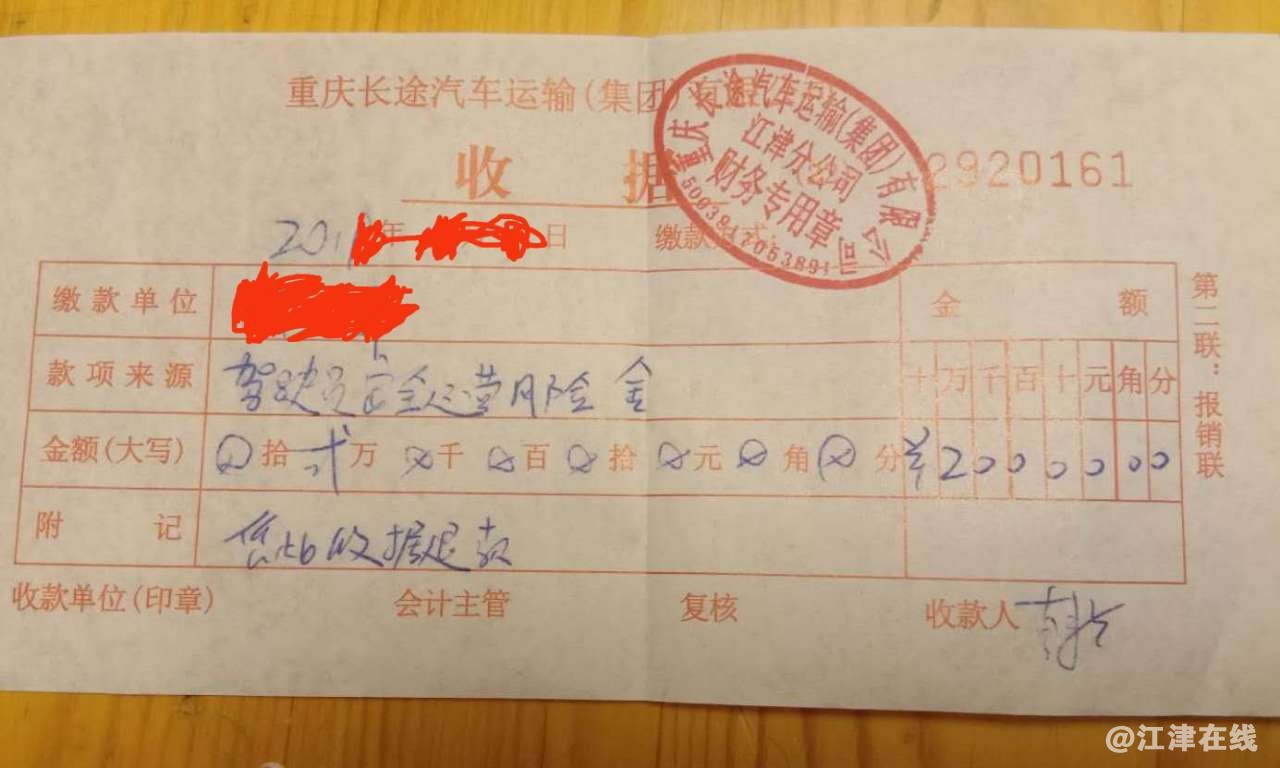 重庆长途汽车运输(集团)有限
重庆长途汽车运输(集团)有限公司
江津分公司
财务专用章
收 据
2920161
201 年 日 缴款 式:
缴款单位 金 额
款项来源 驾驶员安全运营风险金 十万千百十元角分
金额(大写) 0拾贰万0千0百0拾0元0角0分 ¥2000000
附 记 凭此收据退款
第二联:报销联
收款单位(印章) 会计主管 复核 收款人
@江津在线